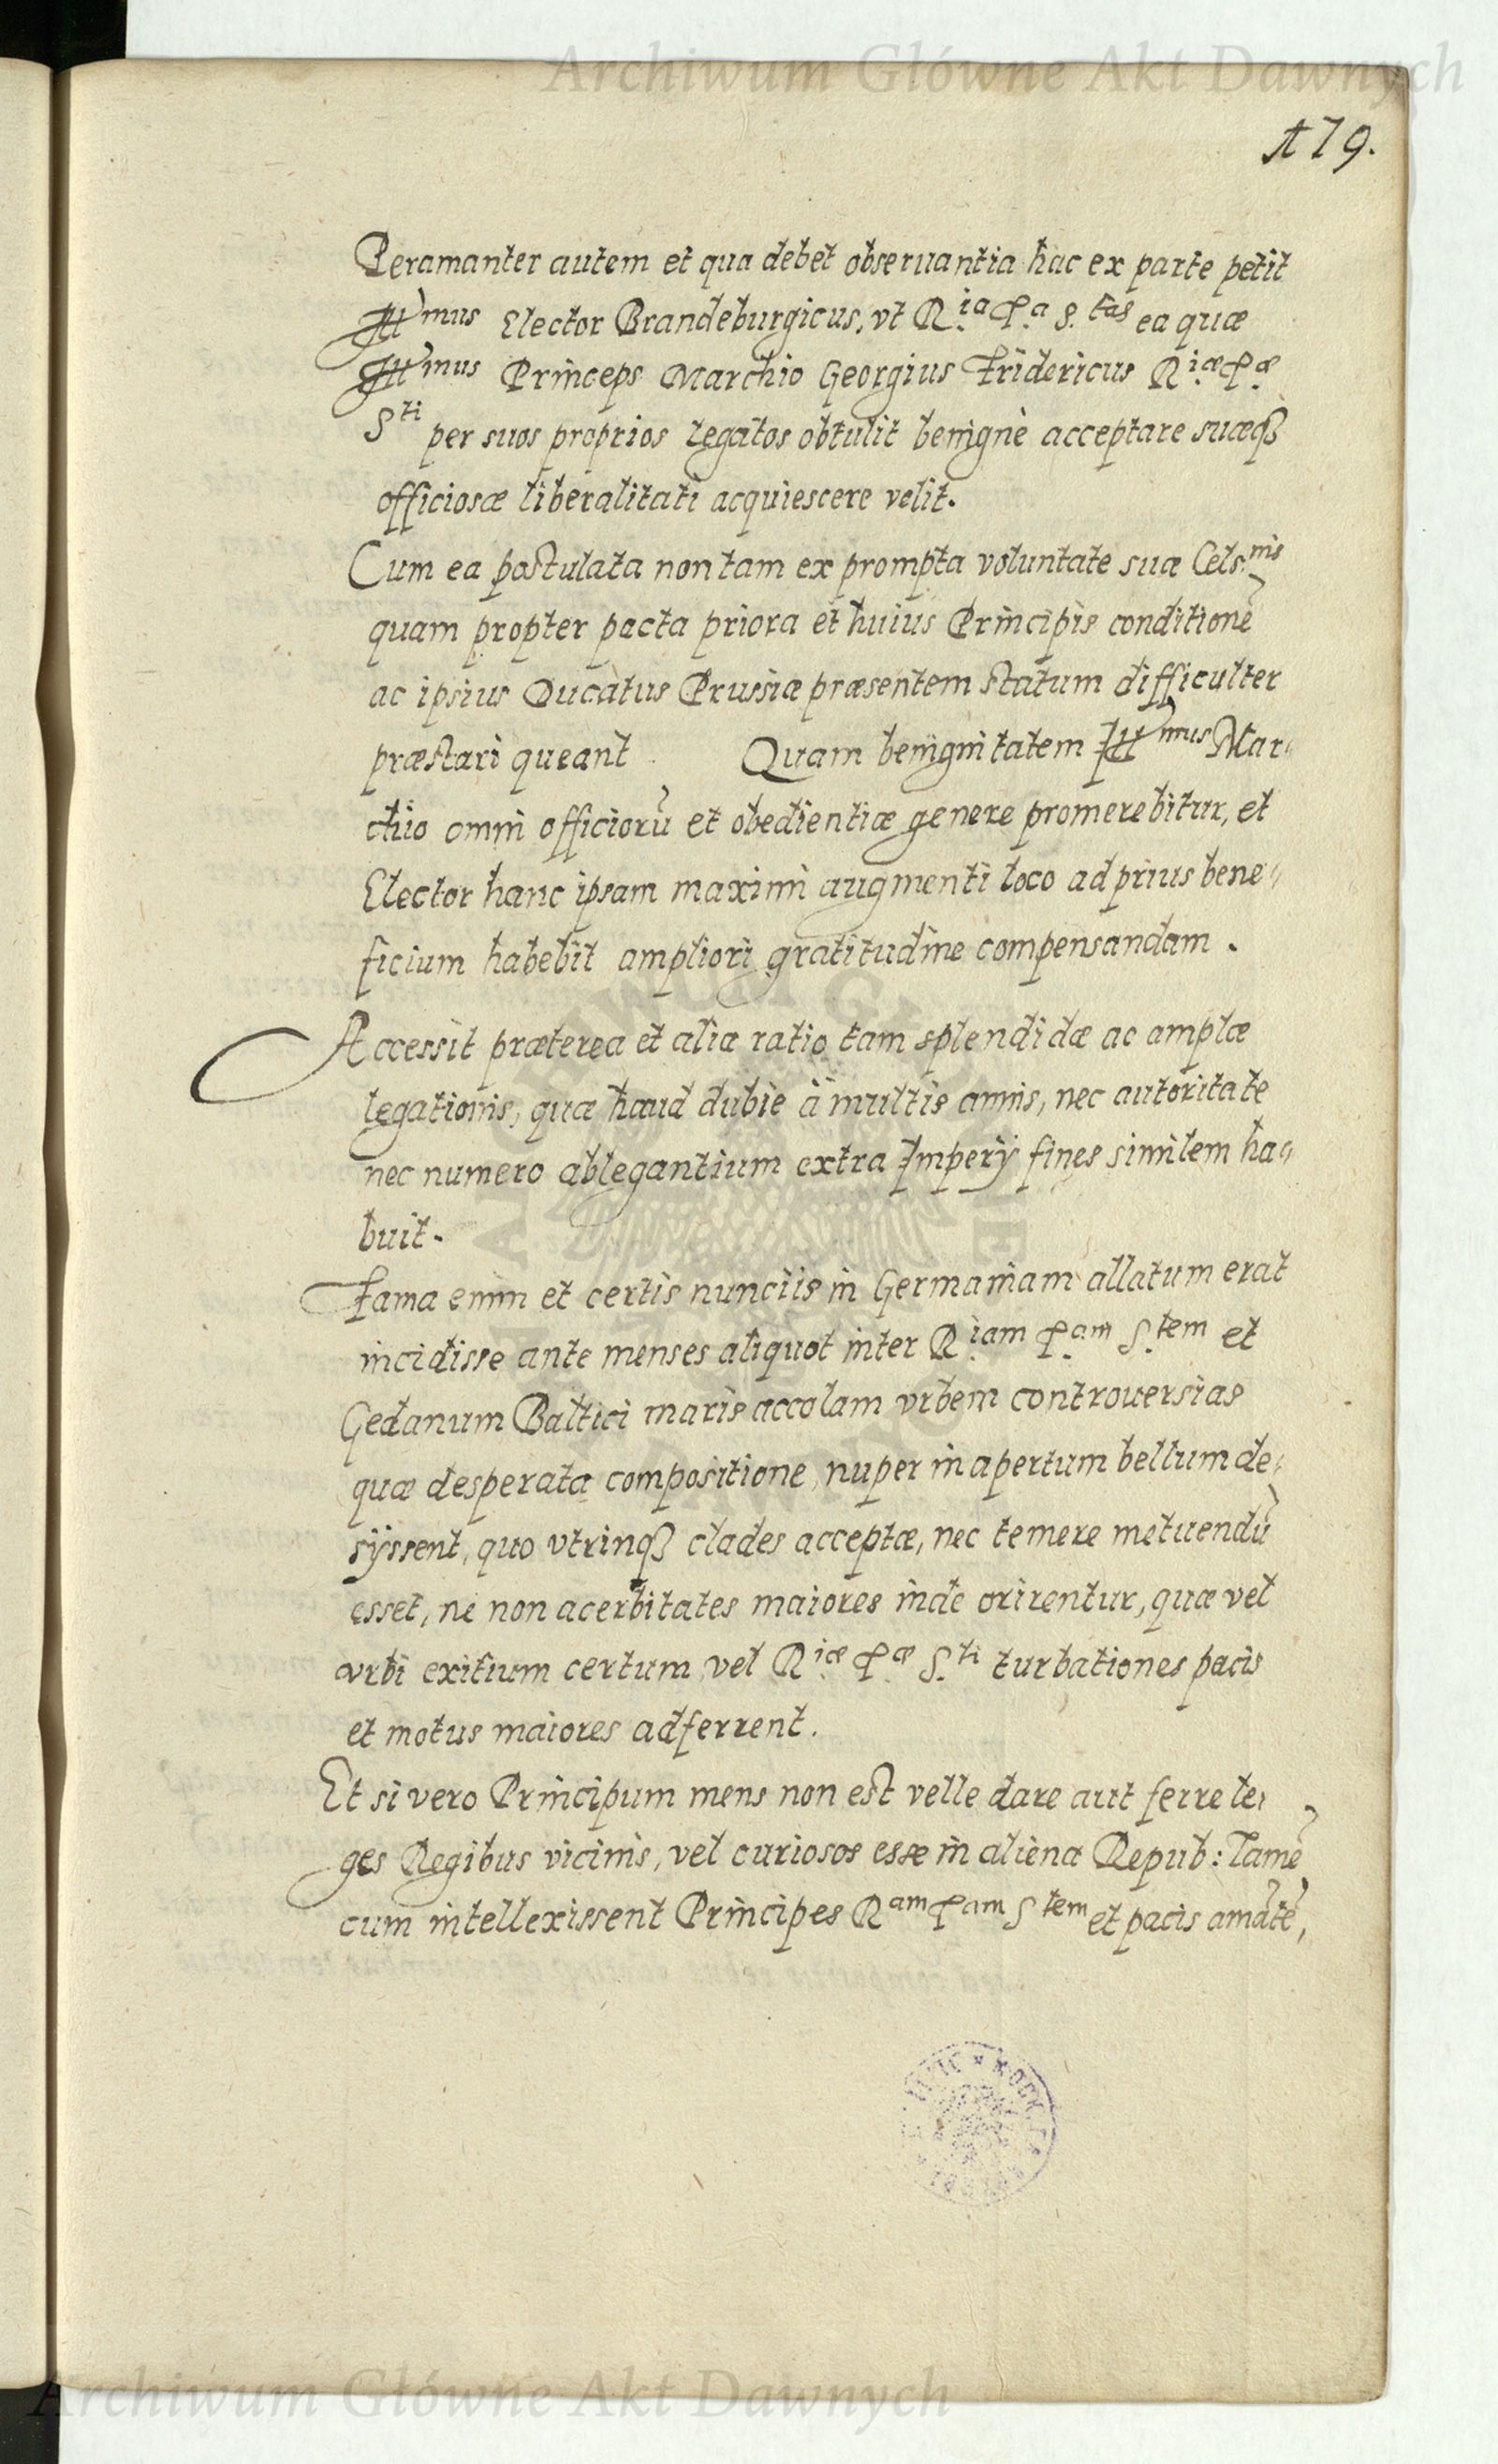 Archiwum Główne Akt Dawnych
179.
Peramanter autem et qua debet obseruantia hac ex parte petit
Ill^mus Elector Brandeburgicus, vt R.^ia P.^a S.^tas ea quæ
Ill^mus Princeps Marchio Georgius Fridericus R.^iæ P.^æ
S^ti per suos proprios legatos obtulit benignè acceptare suæqꝫ
officiosæ liberalitati acquiescere velit.
Cum ea postulata non tam ex prompta voluntate suæ Cels.^nis
quam propter pacta priora et huius Principis conditionẽ
ac ipsius Ducatus Prussiæ præsentem statum difficulter
præstari queant. Quam benignitatem Ill^mus Mar„
chio omni officiorũ et obedientiæ genere promerebitur, et
Elector hanc ipsam maximi augmenti loco ad prius bene„
ficium habebit ampliori gratitudine compensandam.
Accessit præterea et alia ratio tam splendidæ ac amplæ
legationis, quæ haud dubiè à multis annis, nec autoritate
nec numero ablegantium extra Imperÿ fines similem ha„
buit.
Fama enim et certis nunciis in Germaniam allatum erat
incidisse ante menses aliquot inter R.^iam P.^am S.^tem et
Gedanum Baltici maris accolam vrbem controuersias
quæ desperata compositione, nuper in apertum bellum de„
sÿssent, quo vtrinqꝫ clades acceptæ, nec temere metuendũ
esset, ne non acerbitates maiores inde orirentur, quæ vel
vrbi exitium certum, vel R.^iæ P.^æ S.^ti turbationes pacis
et motus maiores adferrent.
Et si vero Principum mens non est velle dare aut ferre le„
ges Regibus vicinis, vel curiosos esse in aliena Repub: Tamẽ
cum intellexissent Principes R^am P^am S^tem et pacis amãtẽ,
Archiwum Główne Akt Dawnych